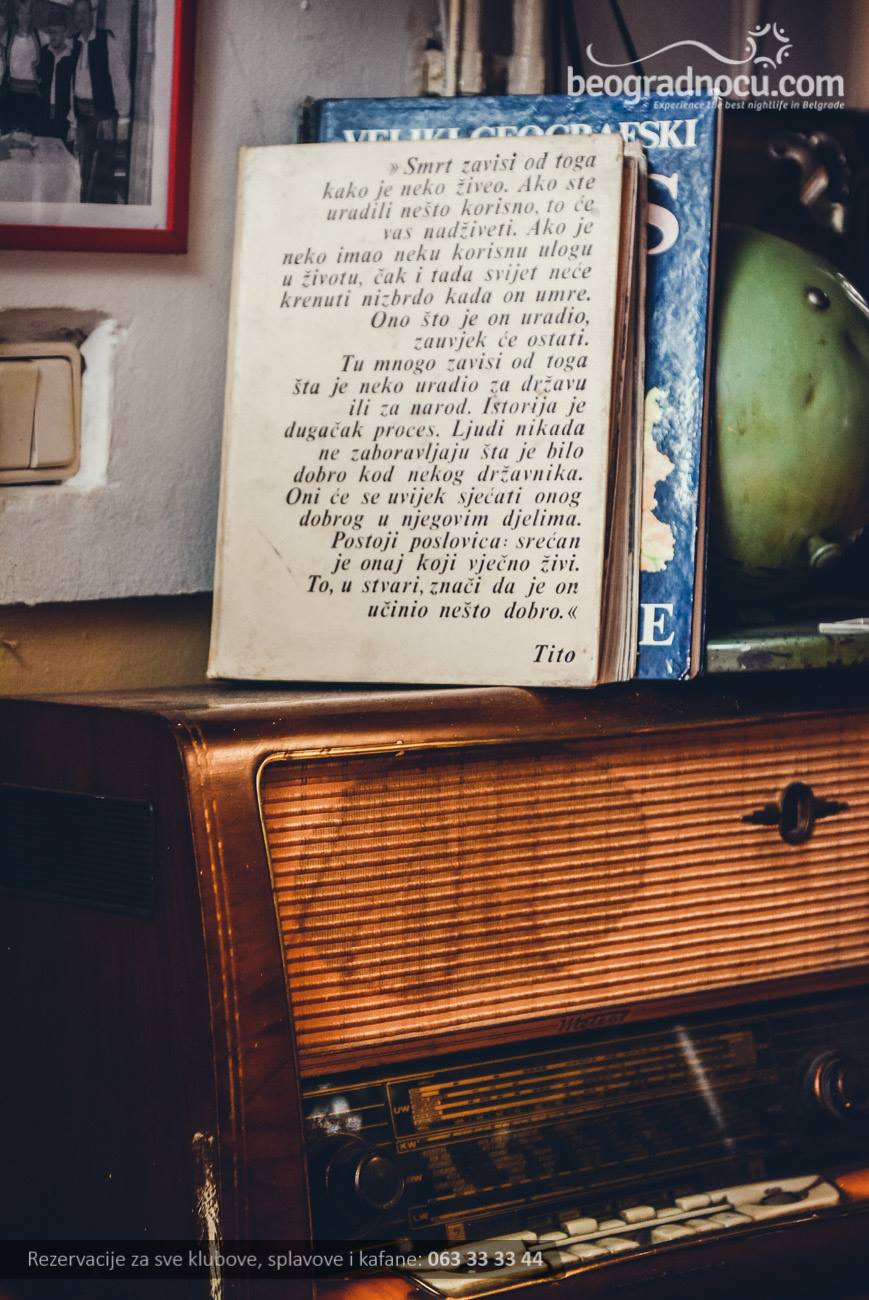 beogradnocu.com
Experience the best nightlife in Belgrade
VELIKI GEOGRAFSKI
S
E
»Smrt zavisi od toga
kako je neko živeo. Ako ste
uradili nešto korisno, to će
vas nadživeti. Ako je
neko imao neku korisnu ulogu
u životu, čak i tada svijet neće
krenuti nizbrdo kada on umre.
Ono što je on uradio,
zauvjek će ostati.
Tu mnogo zavisi od toga
šta je neko uradio za državu
ili za narod. Istorija je
dugačak proces. Ljudi nikada
ne zaboravljaju šta je bilo
dobro kod nekog državnika.
Oni će se uvijek sjećati onog
dobrog u njegovim djelima.
Postoji poslovica: srećan
je onaj koji vječno živi.
To, u stvari, znači da je on
učinio nešto dobro.«
Tito
Meteor
UW
KW
LW
Rezervacije za sve klubove, splavove i kafane: 063 33 33 44